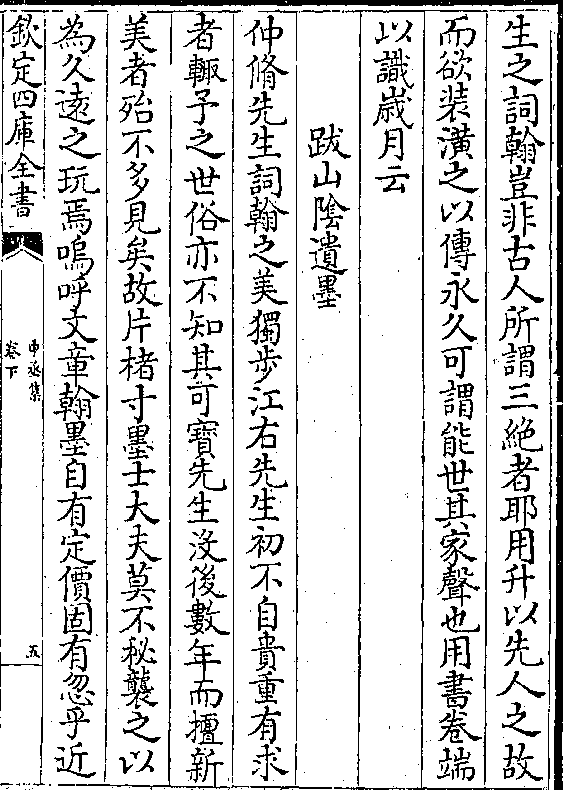 生之詞翰豈非古人所謂三絶者耶用升以先人之故
而欲装潢之以傳永久可謂能世其家聲也用書卷端
以識嵗月云
跋山陰遺墨
仲脩先生詞翰之美獨步江右先生初不自貴重有求
者輒予之世俗亦不知其可寶先生沒後數年而擅新
美者殆不多見矣故片楮寸墨士大夫莫不秘襲之以
為久逺之玩焉嗚呼文章翰墨自有定價固有忽乎近
欽定四庫全書
中丞集
卷下
五